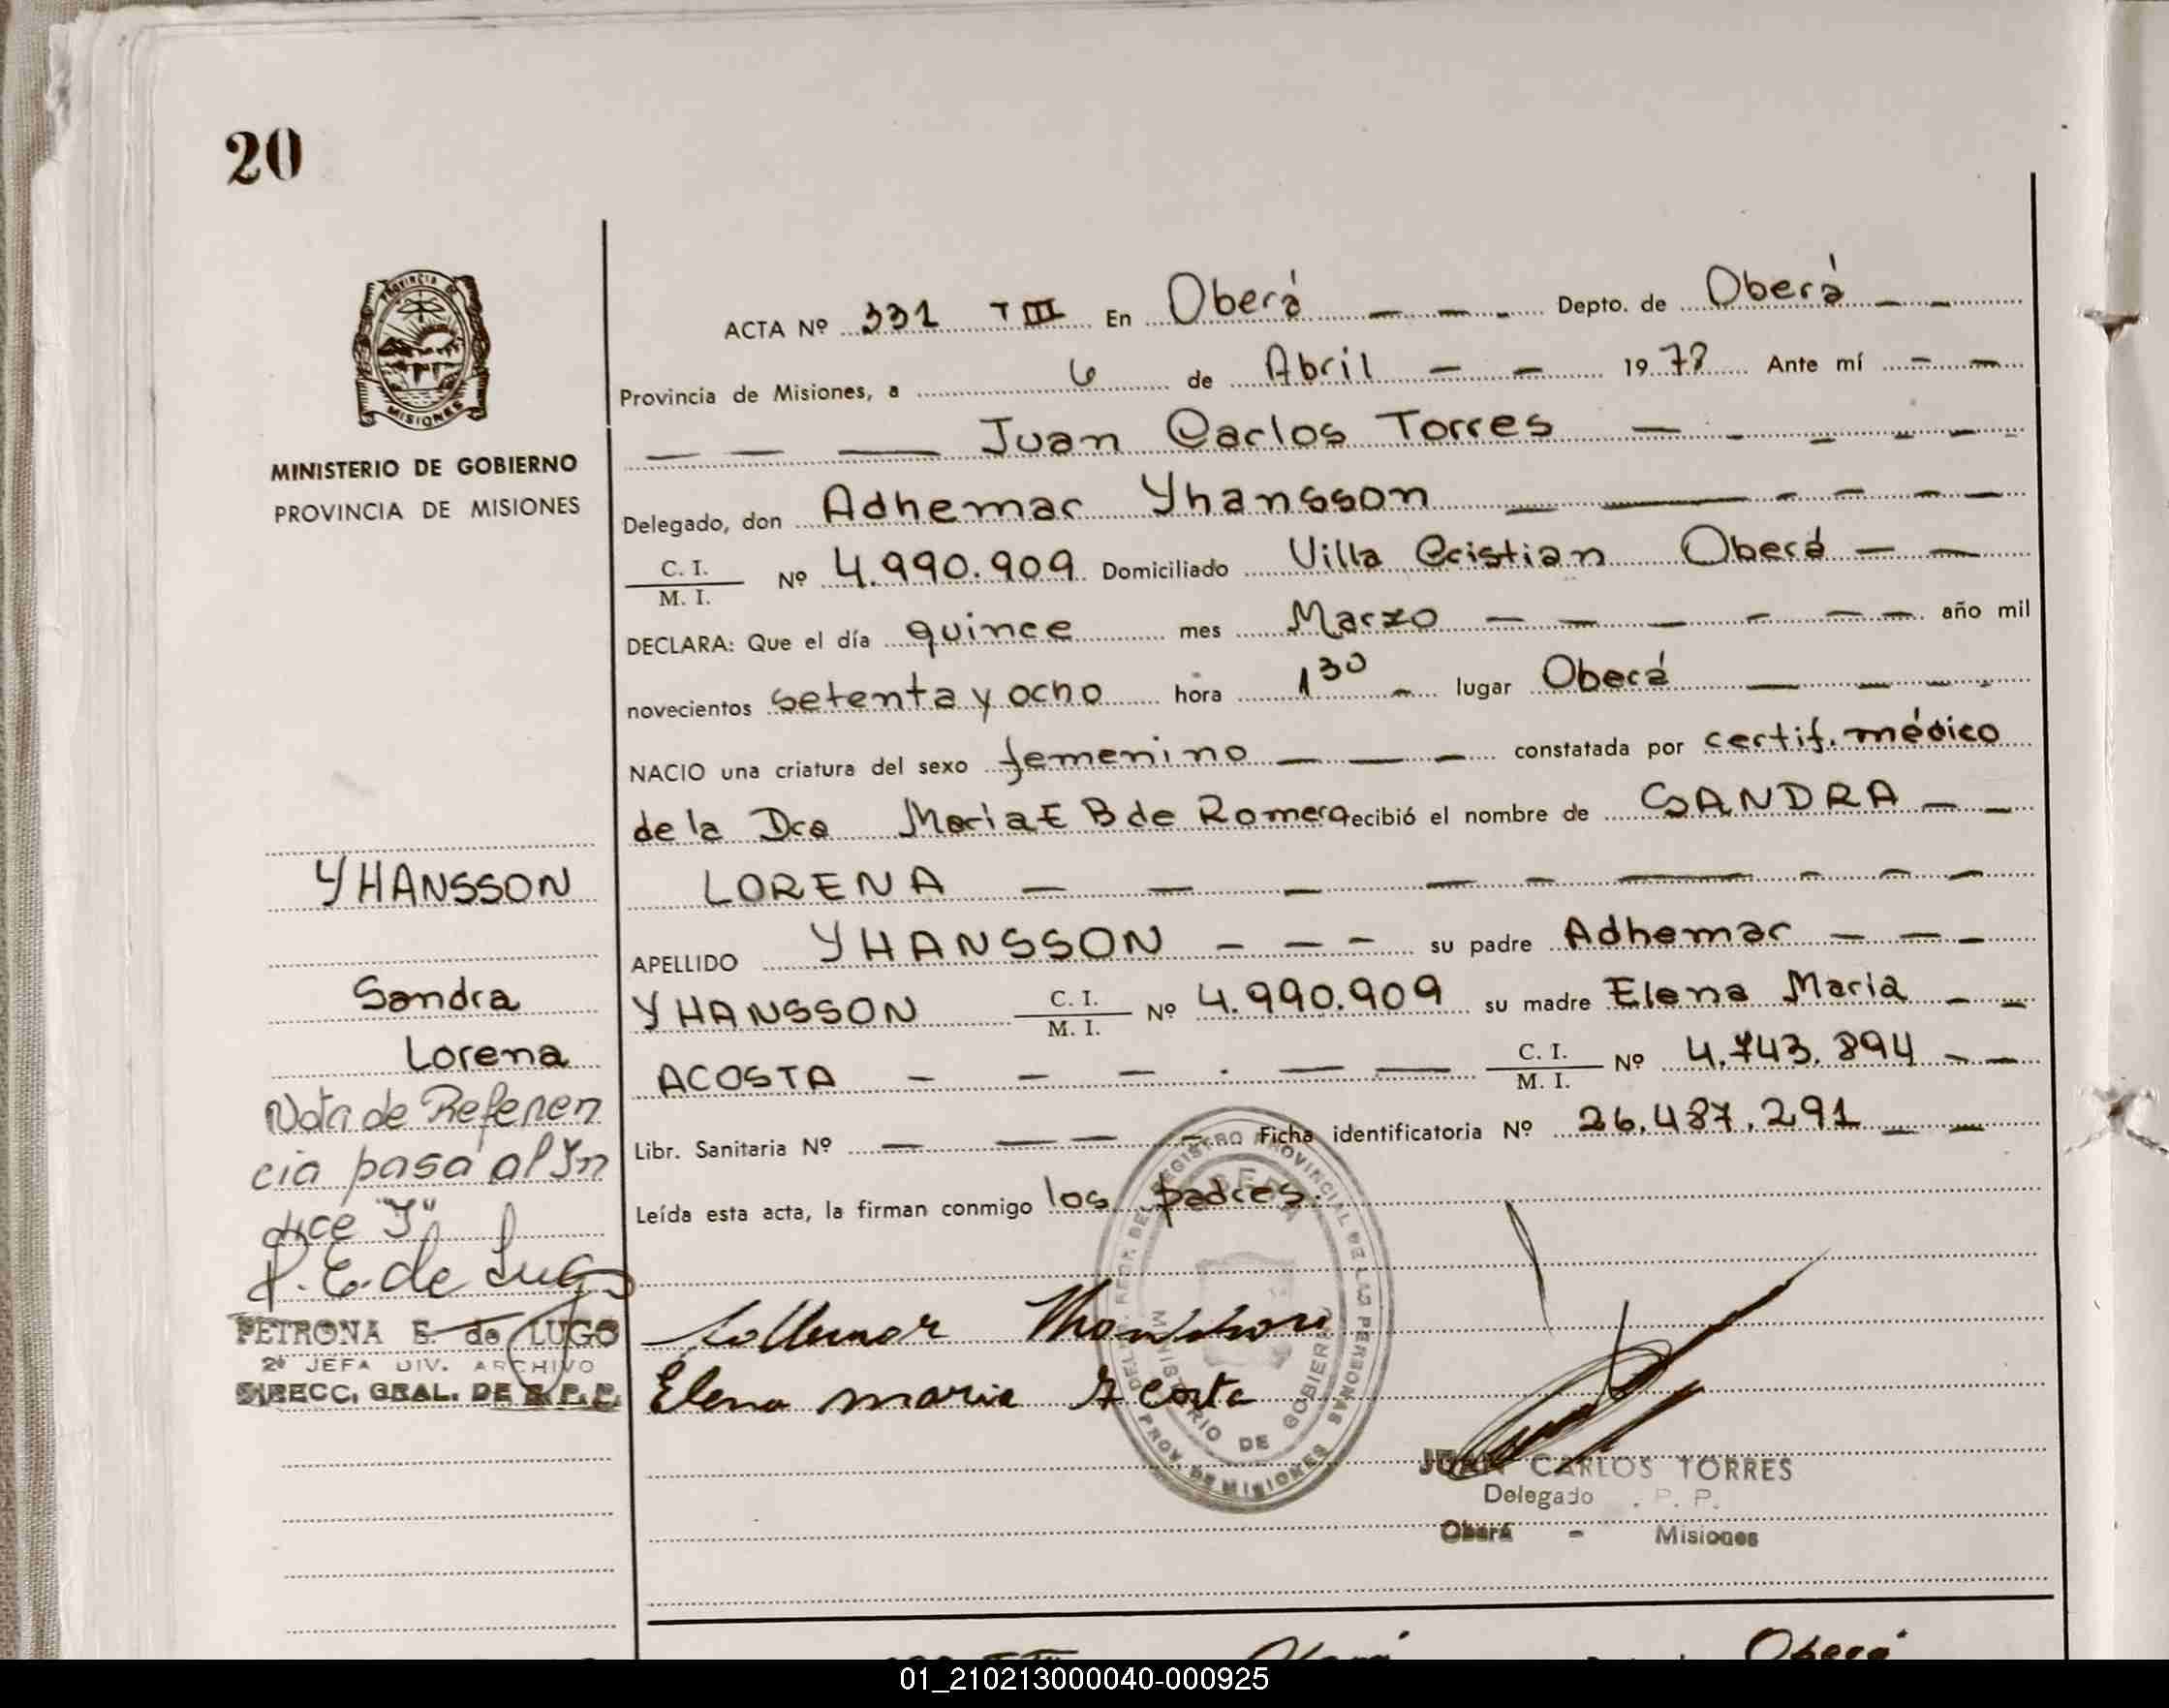 20
PROVINCIA DE
MISIONES
MINISTERIO DE GOBIERNO
PROVINCIA DE MISIONES
ACTA Nº 331 T III En Oberá Depto. de Oberá
Provincia de Misiones, a 6 de Abril 1978 Ante mí
Juan Carlos Torres
Delegado, don Adhemar Yhansson
C. I.
M. I. Nº 4.990.909 Domiciliado Villa Cristian Oberá
DECLARA: Que el día quince mes Marzo año mil
novecientos setenta y ocho hora 1 30 lugar Oberá
NACIO una criatura del sexo femenino constatada por certif. médico
de la Dra Maria E B de Romero recibió el nombre de SANDRA
LORENA
APELLIDO YHANSSON su padre Adhemar
YHANSSON C. I. M. I. Nº 4.990.909 su madre Elena Maria
ACOSTA C. I. M. I. Nº 4.743.894
Libr. Sanitaria Nº Ficha identificatoria Nº 26.487.291
Leída esta acta, la firman conmigo los padres.
YHANSSON
Sandra
Lorena
Nota de Referen
cia pasa al Ín
dice "Y"
P. E. de Lugo
PETRONA E. de LUGO
2ª JEFA DIV. ARCHIVO
DIRECC. GRAL. DE R. P. P.
Adhemar Yhansson
Elena maria Acosta
DEL REGISTRO PROVINCIAL DE LAS PERSONAS
MINISTERIO DE GOBIERNO
PROV. DE MISIONES
JUAN CARLOS TORRES
Delegado . P. P.
Oberá - Misiones
Oberá
01_210213000040-000925